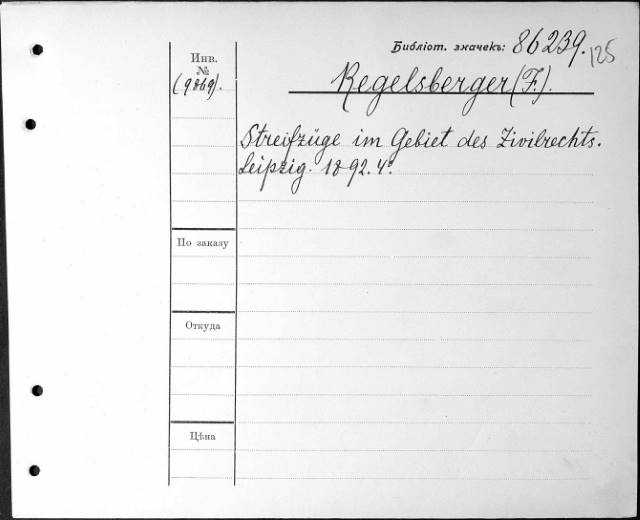 Библіот. значекъ: 86239.
125
Инв.
№
(9869).
Regelsberger (F.).
Streifzüge im Gebiet des Zivilrechts.
Leipzig. 1892. 4º
По заказу
Откуда
Цѣна